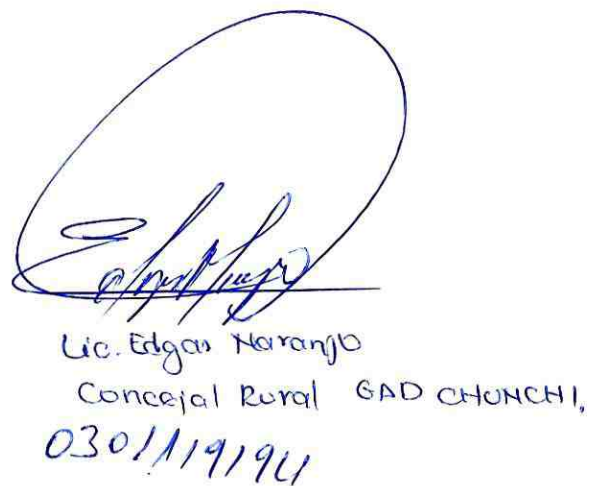 Lic. Edgar Naranjo
Concejal Rural GAD CHUNCHI,
0301119194